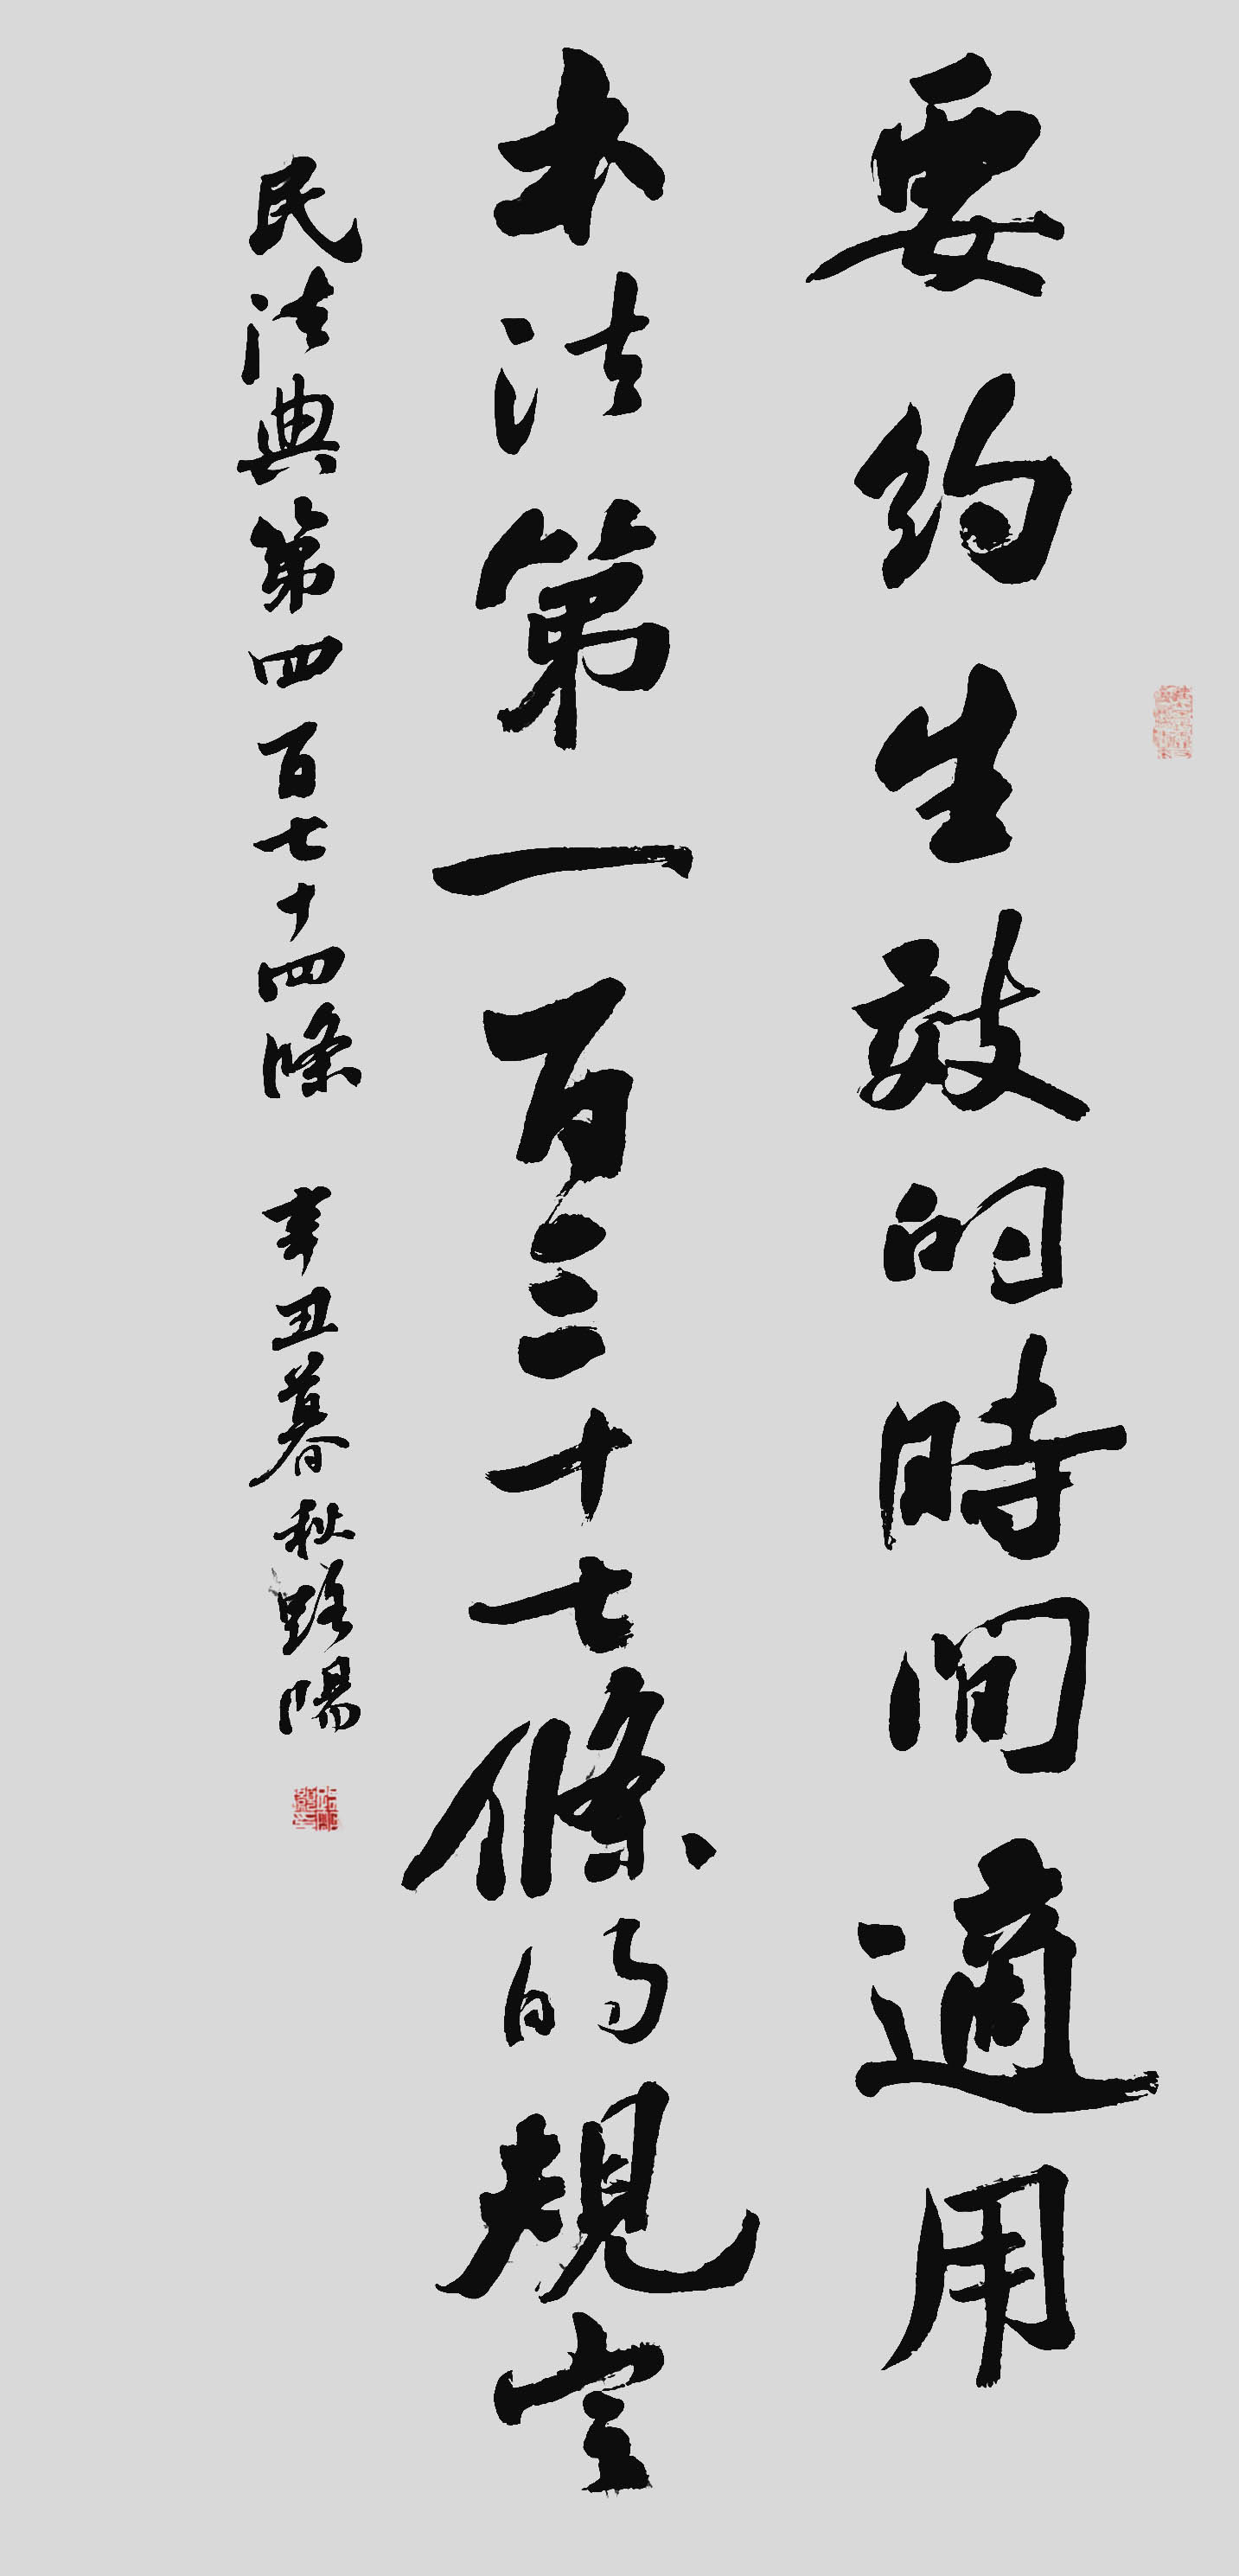 要約生效的時間適用
本法第一百三十七條的規定
民法典第四百七十四條 辛丑暮秋 陽